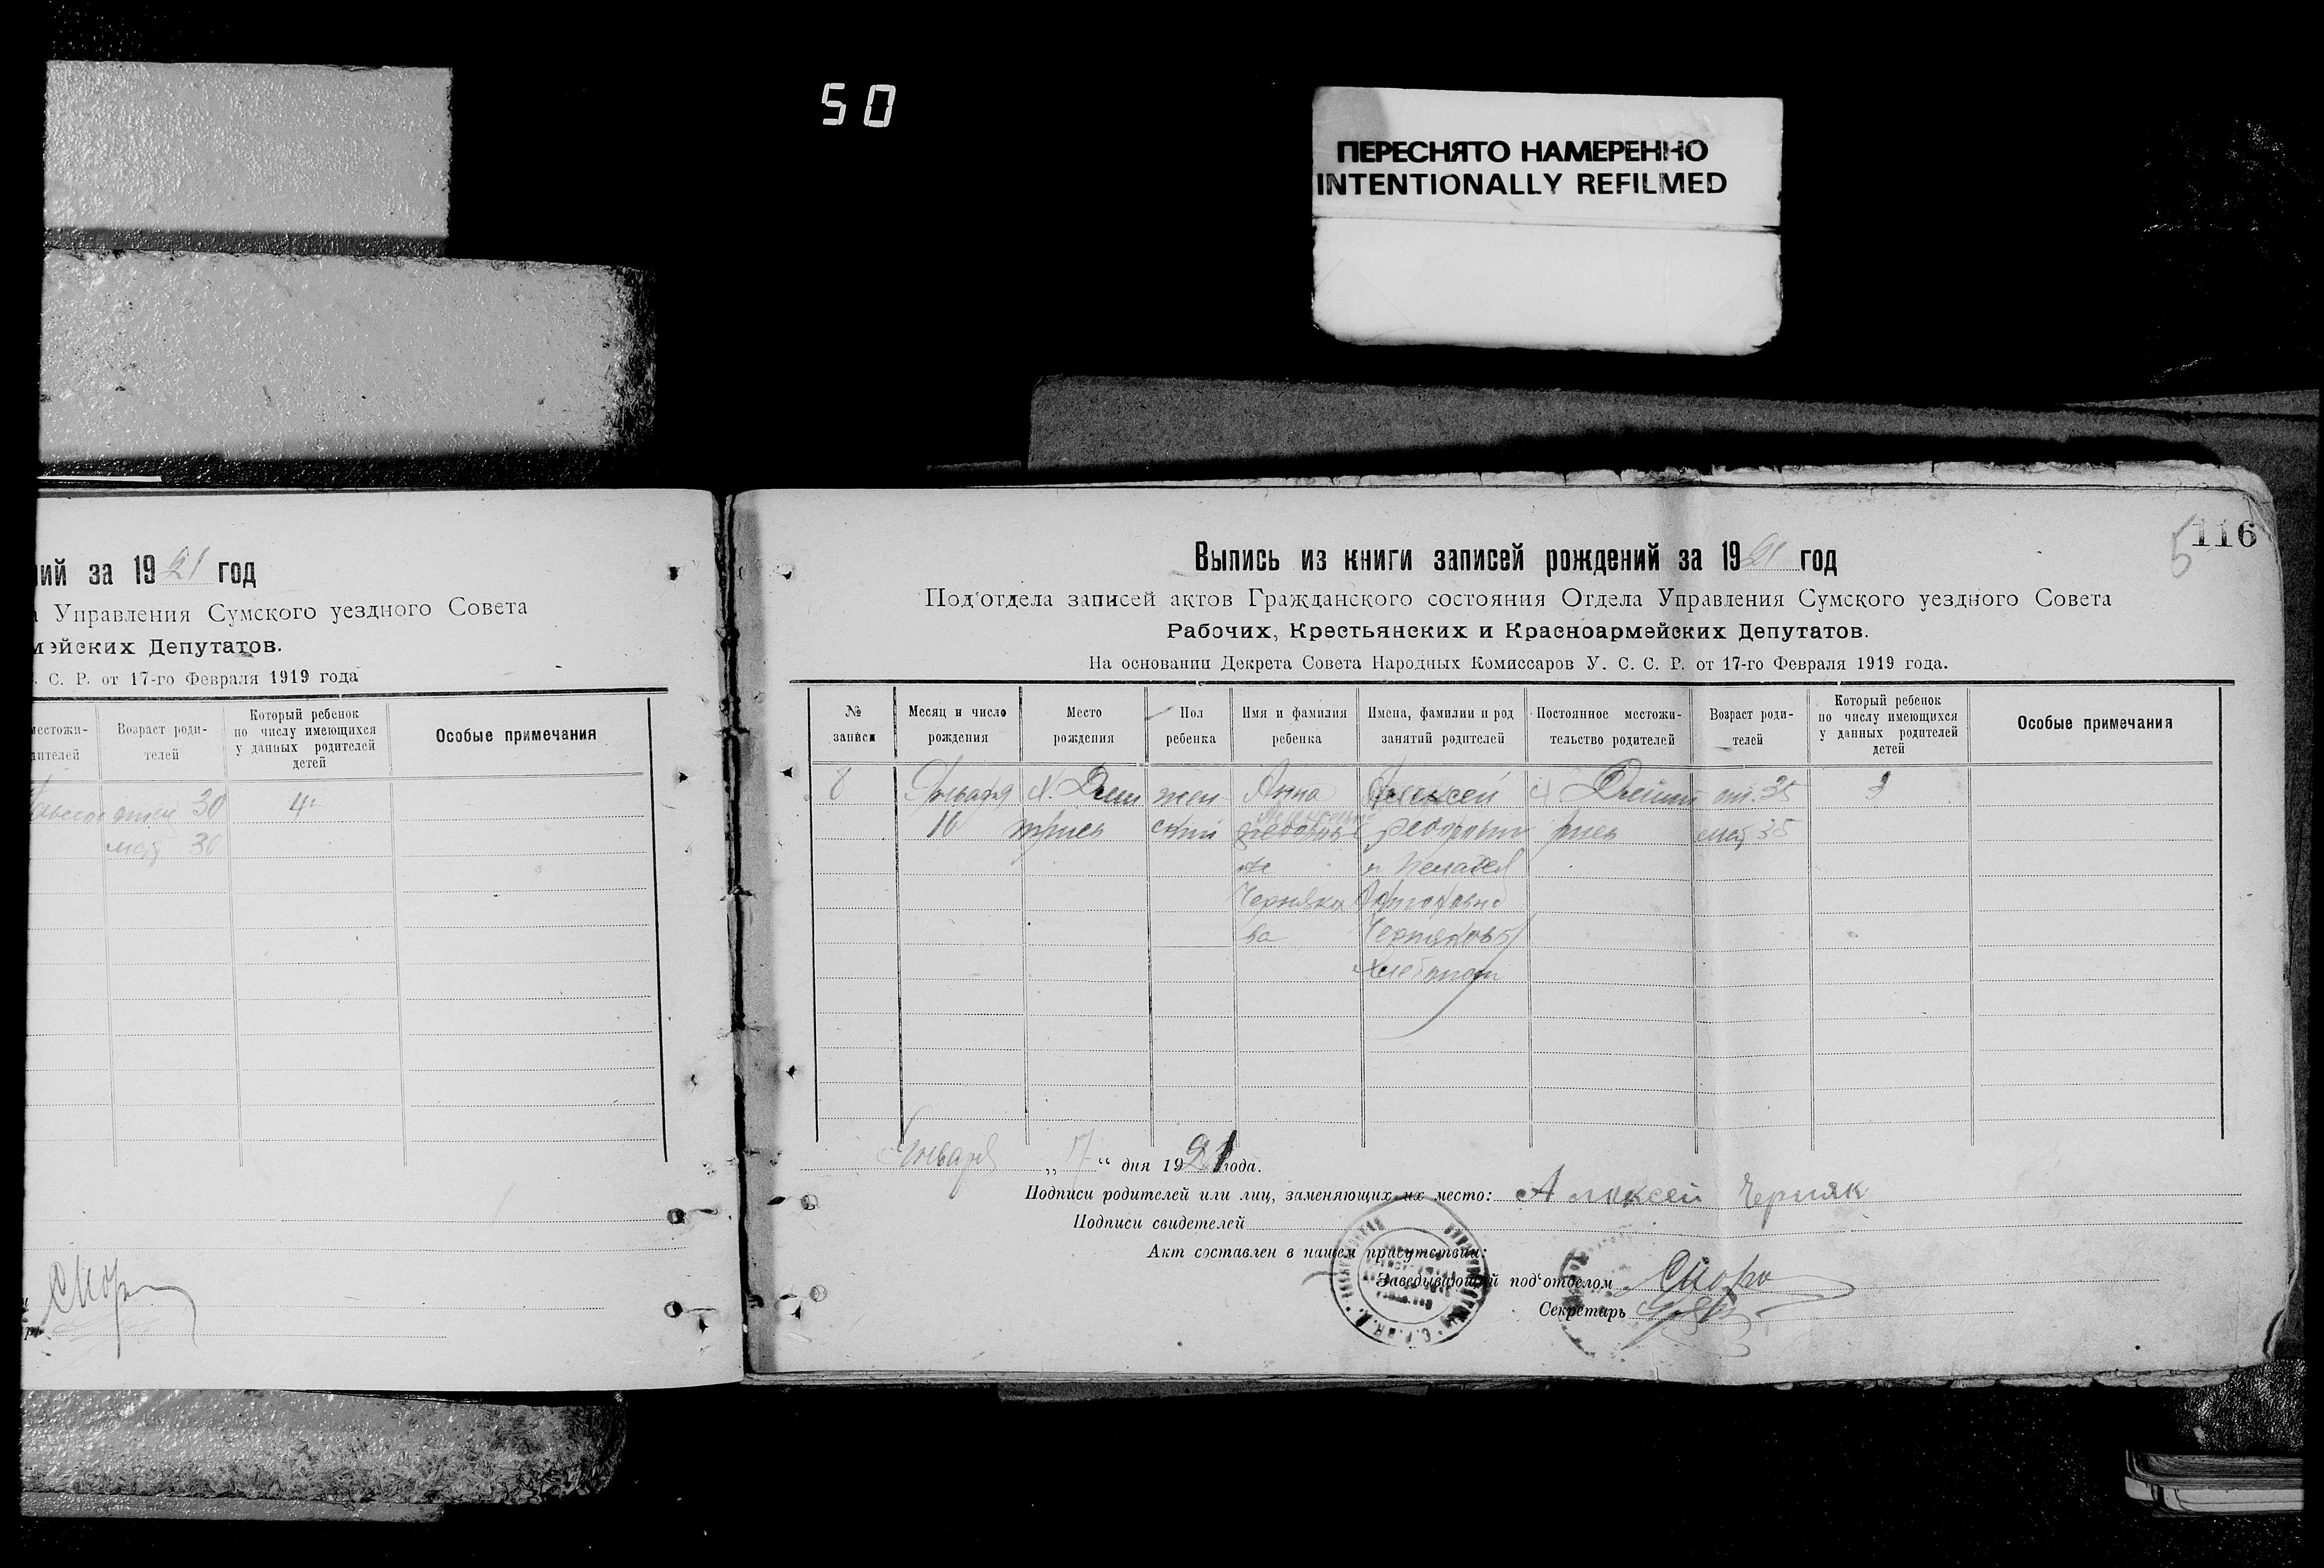 50
ПЕРЕСНЯТО НАМЕРЕННО
INTENTIONALLY REFILMED
ий за 1921 год
а Управления Сумского уездного Совета
мейских Депутатов.
. С. Р. от 17-го Февраля 1919 года
местожи-
дителей
Возраст роди-
телей
Который ребенок
по числу имеющихся
у данных родителей
детей
Особые примечания
отец 30
4
мать 30
5 116
Выпись из книги записей рождений за 1921 год
Под'отдела записей актов Гражданского состояния Отдела Управления Сумского уездного Совета
Рабочих, Крестьянских и Красноармейских Депутатов.
На основании Декрета Совета Народных Комиссаров У. С. С. Р. от 17-го Февраля 1919 года.
№
записи
Месяц и число
рождения
Место
рождения
Пол
ребенка
Имя и фамилия
ребенка
Имена, фамилии и род
занятий родителей
Постоянное местожи-
тельство родителей
Возраст роди-
телей
Который ребенок
по числу имеющихся
у данных родителей
детей
Особые примечания
8
Января
16
жен
ский
Анна
Черняко
ва
Алексей
Федорович
и Пелагея
Черняковы
хлебопаш
от. 35
мат. 35
3
Января „ 17 “ дня 1921 года.
Подписи родителей или лиц, заменяющих их место: Алексей Черняк
Подписи свидетелей
Акт составлен в нашем присутствии:
Заведывающий под'отделом
Секретарь